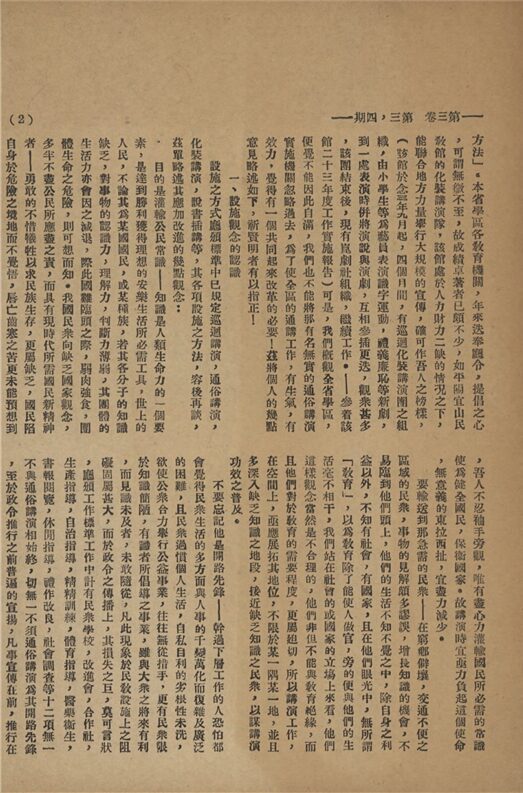 第三卷　第三，四期
(2)
方法」。本省學區各教育機關，年來迭奉廳令，提倡之心
，可謂無微不至，故成績卓著者已頗不少，如平陽宜山民
教館的化裝講演隊，該館處於人力財力二缺的情況之下，
能聯合地方力量舉行大規模的宣傳，確可作吾人之榜樣，
（該館於念三年九月起，四個月間，有巡迴化裝講演團之組
織，由小學生等為藝員表演識字運動，禮義廉恥等新劇，
到一處表演時併將演說與演劇，互相參插更迭，觀衆甚多
，該團結束後，現有崑劇社組織，繼續工作。——參看該
館二十三年度工作實施報告）可是，我們概觀全省學區，
便覺不能因此自滿，我們也不能將那有名無實的通俗講演
實施機關忽略過去，為了使全區的通講工作，有生氣，有
效力，覺得有一個共同起來改革的必要！茲將個人的幾點
意見略述如下，新賢明者有以指正！
一、設施觀念的認識
設施之方式廳頒標準中已規定巡迴講演，通俗講演，
化裝講演，說書插講等，其各項設施之方法，容後再談，
茲單略述其應加改進的幾點觀念：
目的是灌輸公民常識——知識是人類生命力的一個要
素，是達到勝利獲得理想的安樂生活所必需工具，世上的
人民，不論其為某國國民，或某種族，若其各分子的知識
缺乏，對事物的認識力，理解力，判斷力薄弱，其團體的
生活力亦會因之減退，際此國難臨頭之際，弱肉強食，團
體生命之危險，則可想而知。我國民衆向缺乏國家觀念，
多半不盡公民所應盡之責，而具有現時代所需國民新精神
者——勇敢的不惜犧牲以求民族生存，更屬缺乏，國民陷
自身於危險之境地而不覺悟，唇亡齒寒之苦更未能預想到
，吾人不忍袖手旁觀，唯有盡心力灌輸國民所必需的常識
使為健全國民，保衛國家。故講演時宜亟力負起這個使命
，無意義的東拉西扯，宜盡力減少。
要輸送到那急需的民衆——在窮鄉僻壤，交通不便之
區域的民衆，事物的見解頗多謬誤，增長知識的機會，不
易臨到他們頭上，他們的生活不知不覺之中，除自身之利
益以外，不知有社會，有國家，且在他們眼光中，無所謂
「教育」，以為教育除了能使人做官，旁的便與他們的生
活毫不相干，我們站在社會的或國家的立場上來看，他們
這樣觀念當然是不合理的，他們非但不能與教育絕緣，而
且他們對於教育的需要程度，更屬迫切，所以講演工作，
在空間上，亟應展拓其地位，不限於某一隅某一地，並且
多深入缺乏知識之地段，後近缺乏知識之民衆，以謀講演
功效之普及。
不要忘記他是開路先鋒——幹過下層工作的人恐怕都
會覺得民衆生活的多方面與人事的千變萬化而復雜及廣泛
的困難，且民衆過慣個人生活，自私自利的劣根性未洗，
欲使公衆合力舉行公益事業，往往無從措手，更有民衆限
於知識簡陋，有識者所倡導之事業，雖與大衆之將來有利
，而見識未及者，未敢隨從，凡此現象於民教設施上之阻
礙固屬甚大，而於政令之傳播上，其損失之巨，莫可言狀
，廳頒工作標準工作中計有民衆學校，改進會，合作社，
生產指導，自治指導，精精訓練，體育指導，醫藥衛生，
書報閱覽，休閒指導，禮作改良，社會調查等十二項無一
不與通俗講演相始終，切無一不須通俗講演為其開路先鋒
，至於政令推行之前普遍的宣揚，凡事宣傳在前，推行在